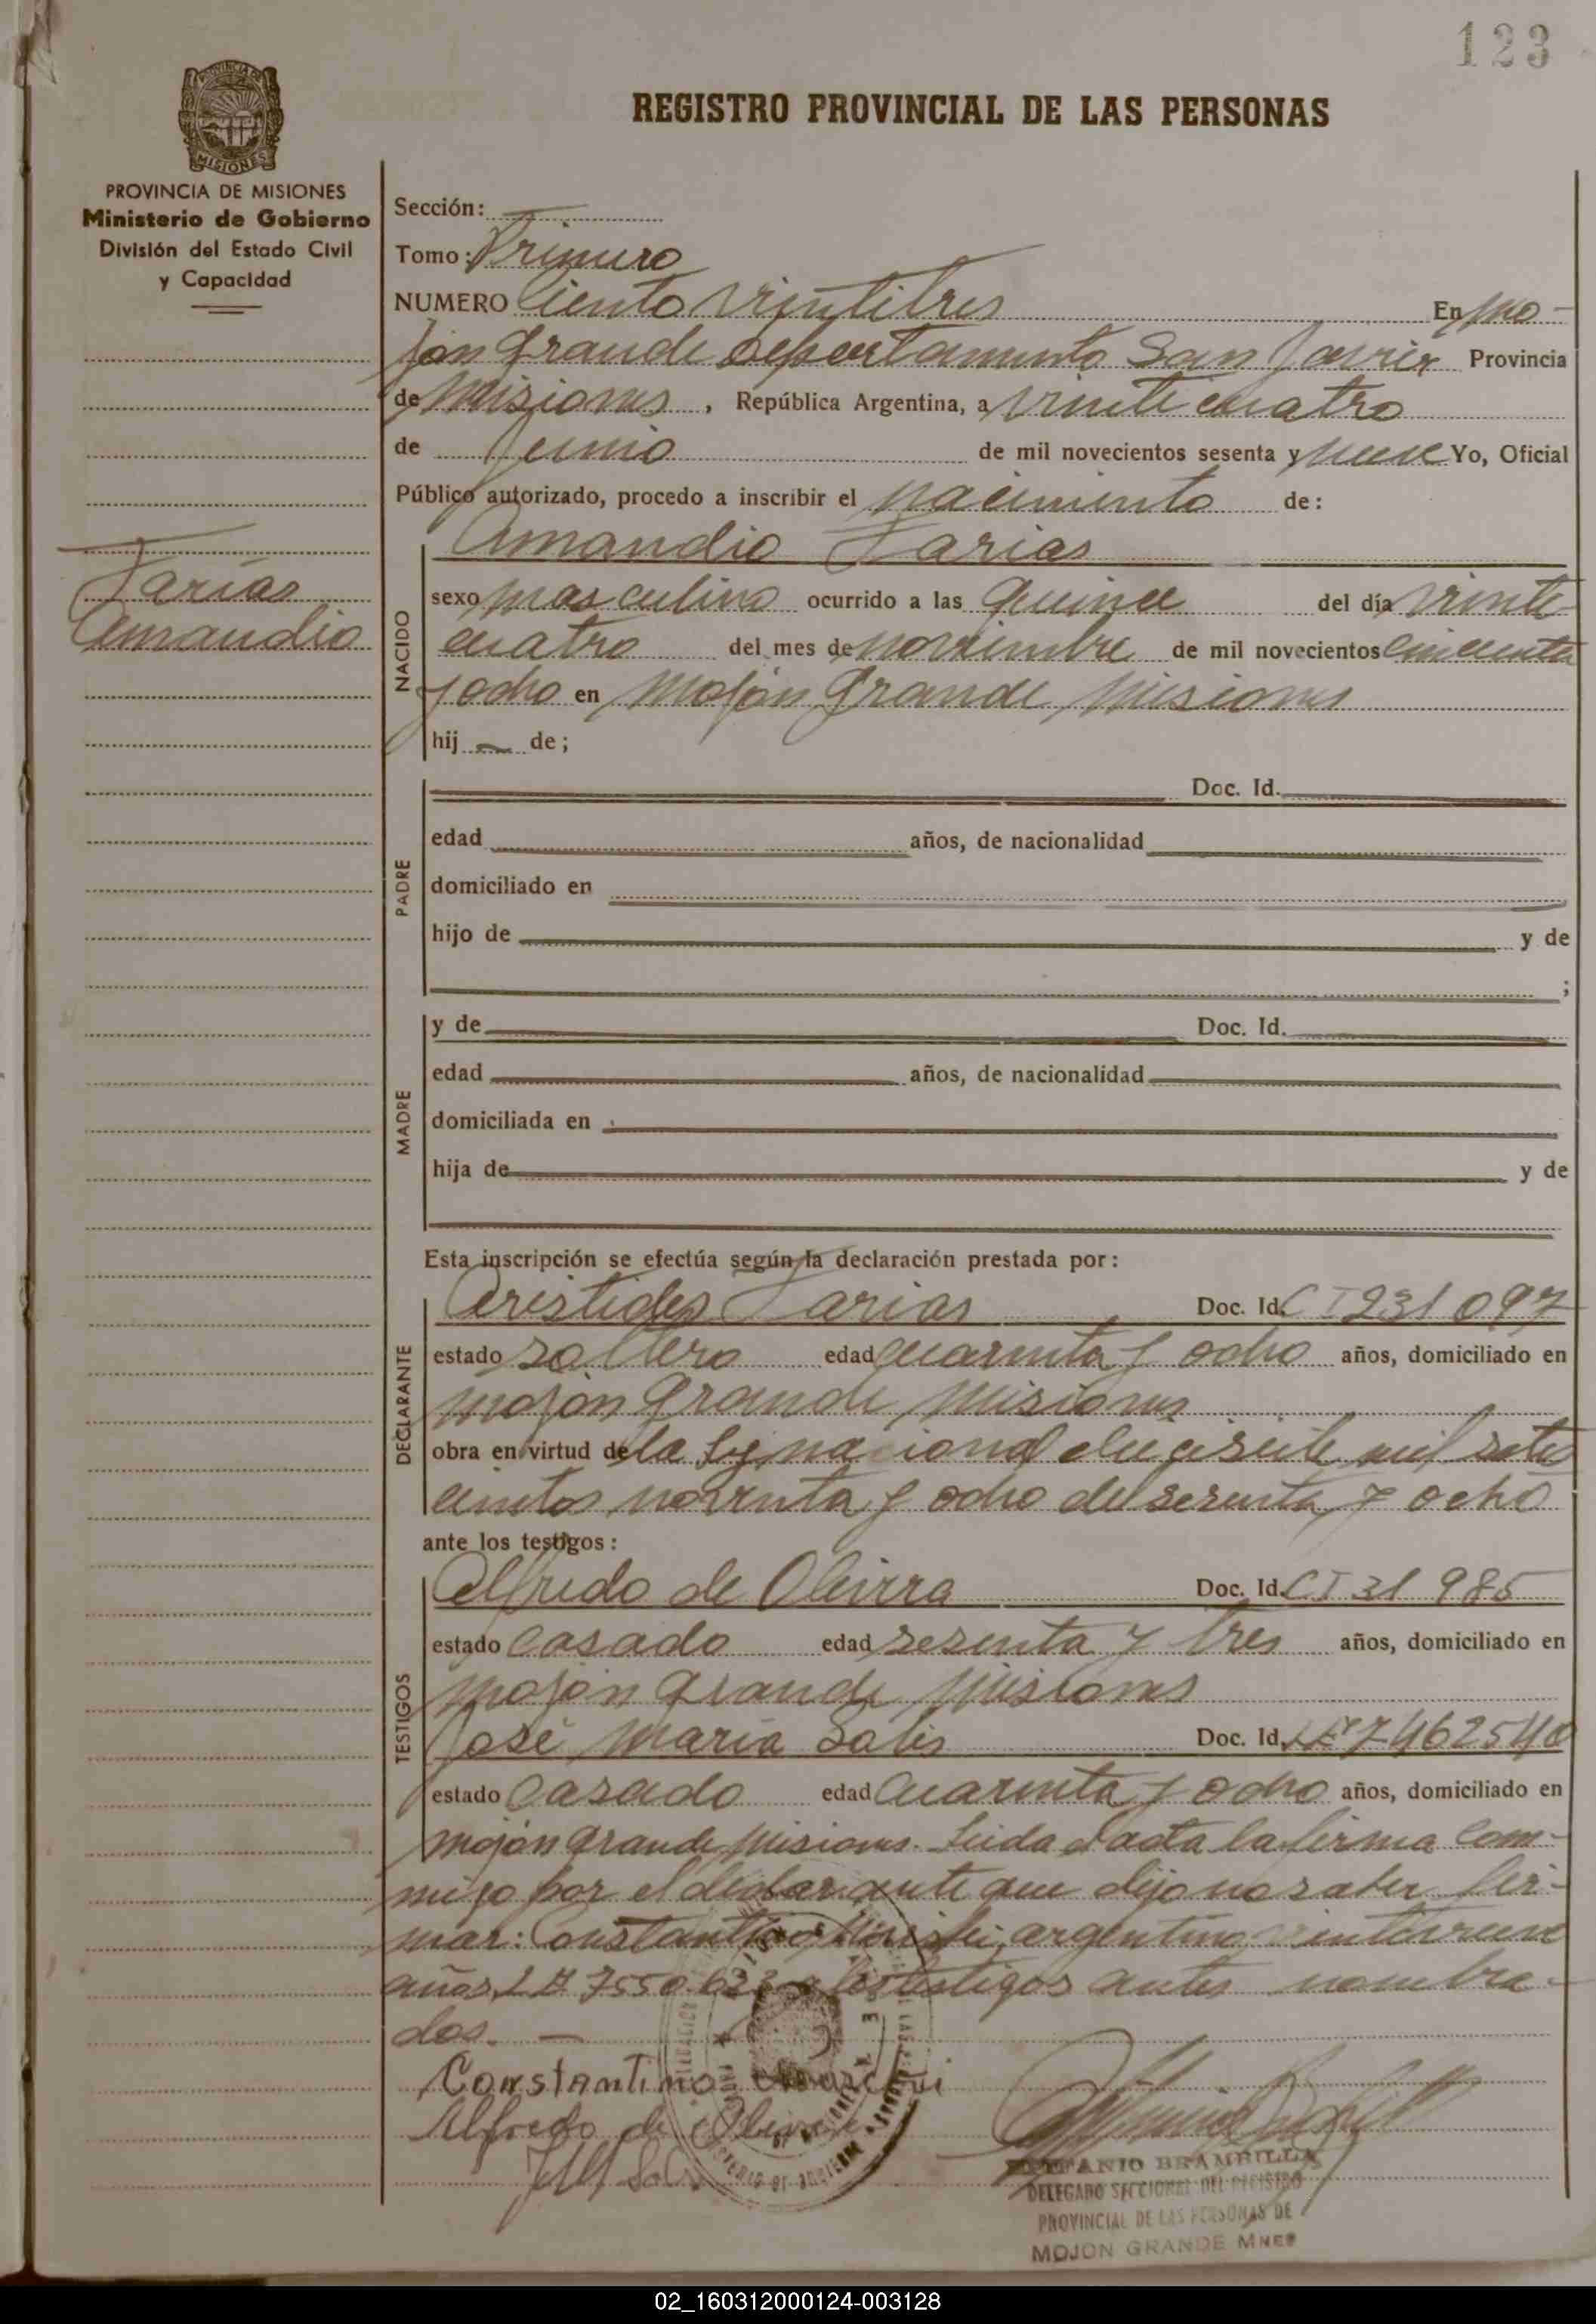 123
REGISTRO PROVINCIAL DE LAS PERSONAS
PROVINCIA DE
MISIONES
PROVINCIA DE MISIONES
Ministerio de Gobierno
División del Estado Civil
y Capacidad
Farías
Amandio
Sección:
Tomo: Primero
NUMERO Ciento Vintitres En Mo-
jón Grande Departamento San Javier Provincia
de Misiones, República Argentina, a Vinti cuatro
de Junio de mil novecientos sesenta y nueve Yo, Oficial
Público autorizado, procedo a inscribir el nacimiento de:
Amandio Farias
NACIDO
sexo masculino ocurrido a las quince del día Vinte
cuatro del mes de noviembre de mil novecientos cincuenta
y ocho en Mojón Grande Misiones
hij de;
PADRE
Doc. Id.
edad años, de nacionalidad
domiciliado en
hijo de y de
;
MADRE
y de Doc. Id.
edad años, de nacionalidad
domiciliada en
hija de y de
Esta inscripción se efectúa según la declaración prestada por:
DECLARANTE
Aristides Farias Doc. Id. CI 231 097
estado soltero edad cuarenta y ocho años, domiciliado en
Mojón Grande Misiones
obra en virtud de la Ley nacional diecisiete mil sete
cientos noventa y ocho del sesenta y ocho
ante los testigos:
TESTIGOS
Alfredo de Oliveira Doc. Id. CI 31 985
estado Casado edad sesenta y tres años, domiciliado en
Mojón Grande Misiones
José María Solis Doc. Id. LE 7462540
estado Casado edad Cuarenta y ocho años, domiciliado en
Mojón Grande Misiones. Leida el acta la firma con-
migo por el declarante que dijo no saber fir-
mar: Constantino argentino
años LE 7550 633 y los testigos antes nombra-
dos. —
Constantino
Alfredo de Oliveira
BRAMBILLA
DELEGADO SECCIONAL DEL REGISTRO
PROVINCIAL DE LAS PERSONAS DE
MOJON GRANDE Mnes
02_160312000124-003128